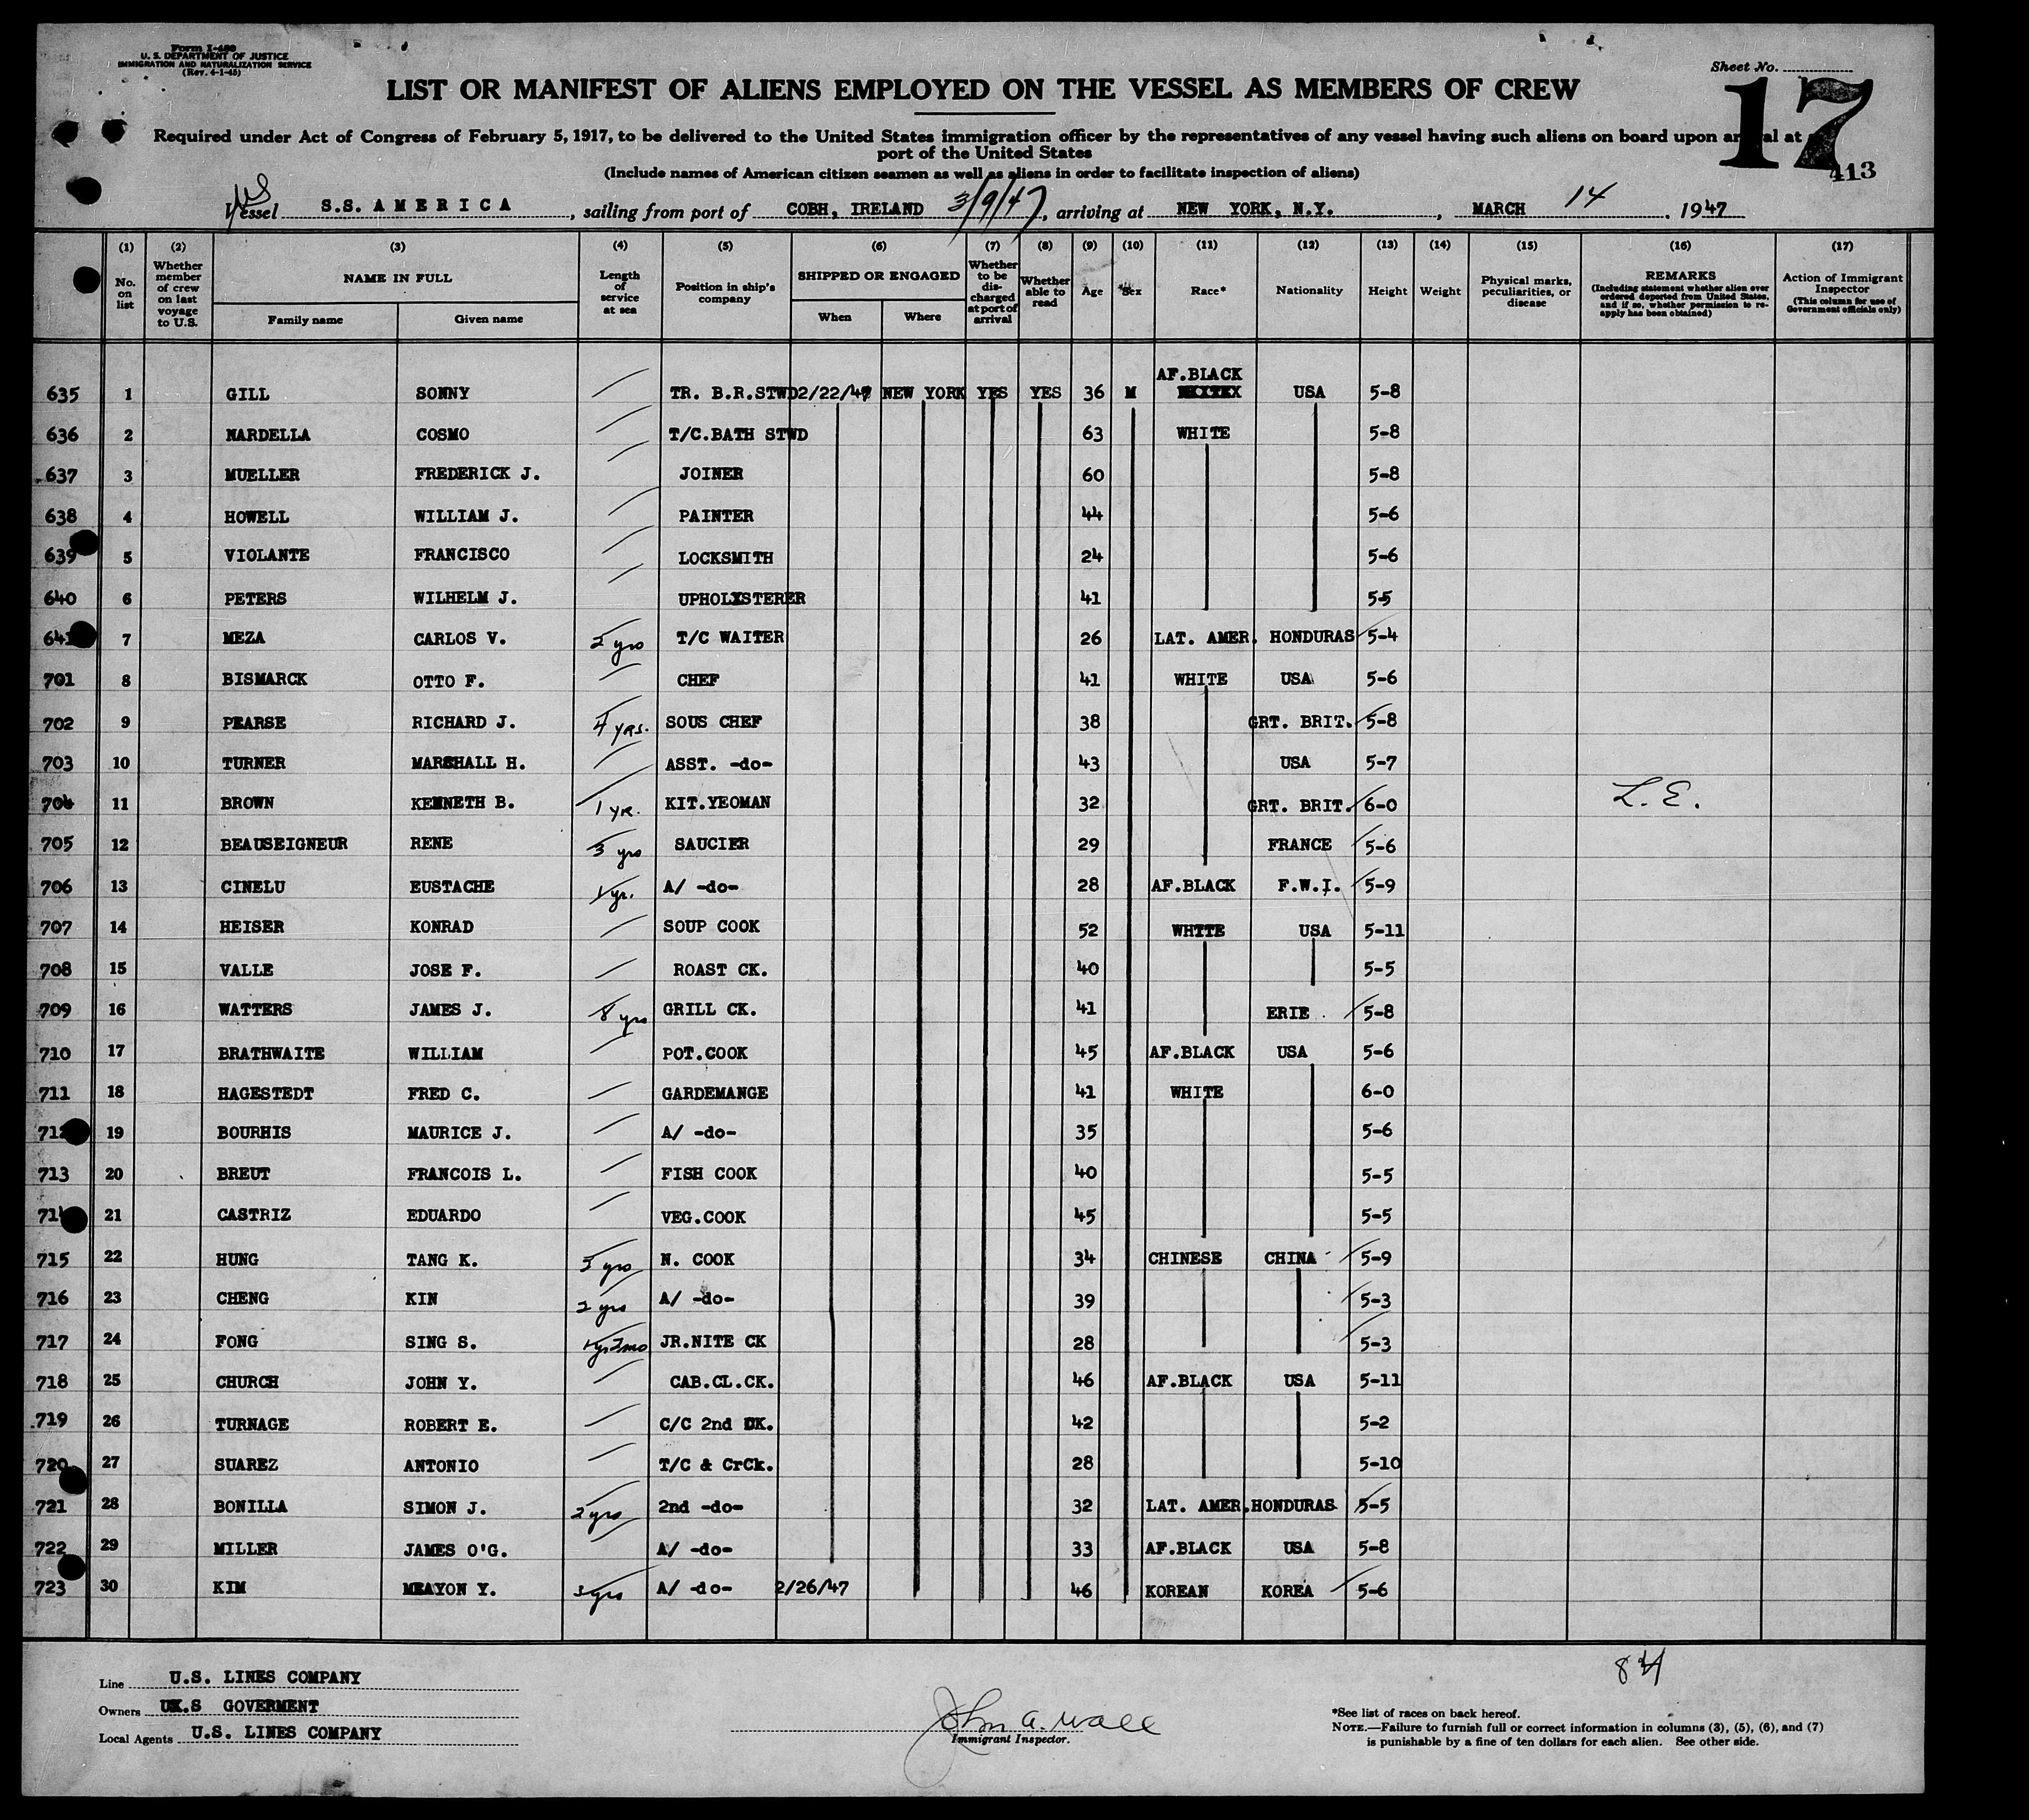 Form I-480
U. S. DEPARTMENT OF JUSTICE
IMMIGRATION AND NATURALIZATION SERVICE
(Rev. 4-1-45)
Sheet No.
17
413
LIST OR MANIFEST OF ALIENS EMPLOYED ON THE VESSEL AS MEMBERS OF CREW
Required under Act of Congress of February 5, 1917, to be delivered to the United States immigration officer by the representatives of any vessel having such aliens on board upon arrival at
port of the United States
(Include names of American citizen seamen as well as aliens in order to facilitate inspection of aliens)
US
Vessel S.S. AMERICA, sailing from port of COBH, IRELAND 3/9/47, arriving at NEW YORK, N.Y., MARCH 14, 1947
(1) (2) (3) (4) (5) (6) (7) (8) (9) (10) (11) (12) (13) (14) (15) (16) (17)
No. on list
Whether member of crew on last voyage to U.S.
NAME IN FULL
Family name Given name
Length of service at sea
Position in ship's company
SHIPPED OR ENGAGED
When Where
Whether to be discharged at port of arrival
Whether able to read
Age
Sex
Race*
Nationality
Height
Weight
Physical marks, peculiarities, or disease
REMARKS
(Including statement whether alien ever ordered deported from United States, and if so, whether permission to reapply has been obtained)
Action of Immigrant Inspector
(This column for use of Government officials only)
635 1 GILL SONNY TR. B.R.STWD 2/22/47 NEW YORK YES YES 36 M AF.BLACK USA 5-8
636 2 NARDELLA COSMO T/C.BATH STWD 63 WHITE 5-8
637 3 MUELLER FREDERICK J. JOINER 60 5-8
638 4 HOWELL WILLIAM J. PAINTER 44 5-6
639 5 VIOLANTE FRANCISCO LOCKSMITH 24 5-6
640 6 PETERS WILHELM J. UPHOLXSTERER 41 5-5
641 7 MEZA CARLOS V. 2 yrs T/C WAITER 26 LAT. AMER. HONDURAS 5-4
701 8 BISMARCK OTTO F. CHEF 41 WHITE USA 5-6
702 9 PEARSE RICHARD J. 4 yrs. SOUS CHEF 38 GRT. BRIT. 5-8
703 10 TURNER MARSHALL H. ASST. -do- 43 USA 5-7
704 11 BROWN KENNETH B. 1 YR. KIT.YEOMAN 32 GRT. BRIT. 6-0 L.E.
705 12 BEAUSEIGNEUR RENE 3 yrs SAUCIER 29 FRANCE 5-6
706 13 CINELU EUSTACHE 1 yr. A/ -do- 28 AF.BLACK F.W.I. 5-9
707 14 HEISER KONRAD SOUP COOK 52 WHITE USA 5-11
708 15 VALLE JOSE F. ROAST CK. 40 5-5
709 16 WATTERS JAMES J. 8 yrs GRILL CK. 41 ERIE 5-8
710 17 BRATHWAITE WILLIAM POT.COOK 45 AF.BLACK USA 5-6
711 18 HAGESTEDT FRED C. GARDEMANGE 41 WHITE 6-0
712 19 BOURHIS MAURICE J. A/ -do- 35 5-6
713 20 BREUT FRANCOIS L. FISH COOK 40 5-5
714 21 CASTRIZ EDUARDO VEG.COOK 45 5-5
715 22 HUNG TANG K. 3 yrs N. COOK 34 CHINESE CHINA 5-9
716 23 CHENG KIN 2 yrs A/ -do- 39 5-3
717 24 FONG SING S. 1yr2mo JR.NITE CK 28 5-3
718 25 CHURCH JOHN Y. CAB.CL.CK. 46 AF.BLACK USA 5-11
719 26 TURNAGE ROBERT E. C/C 2nd DK. 42 5-2
720 27 SUAREZ ANTONIO T/C & CrCk. 28 5-10
721 28 BONILLA SIMON J. 2 yrs 2nd -do- 32 LAT. AMER. HONDURAS 5-5
722 29 MILLER JAMES O'G. A/ -do- 33 AF.BLACK USA 5-8
723 30 KIM MEAYON Y. 3 yrs A/ -do- 2/26/47 46 KOREAN KOREA 5-6
Line U.S. LINES COMPANY
Owners UK.S GOVERMENT
Local Agents U.S. LINES COMPANY
John A. Wall
Immigrant Inspector.
*See list of races on back hereof.
NOTE.—Failure to furnish full or correct information in columns (3), (5), (6), and (7)
is punishable by a fine of ten dollars for each alien. See other side.